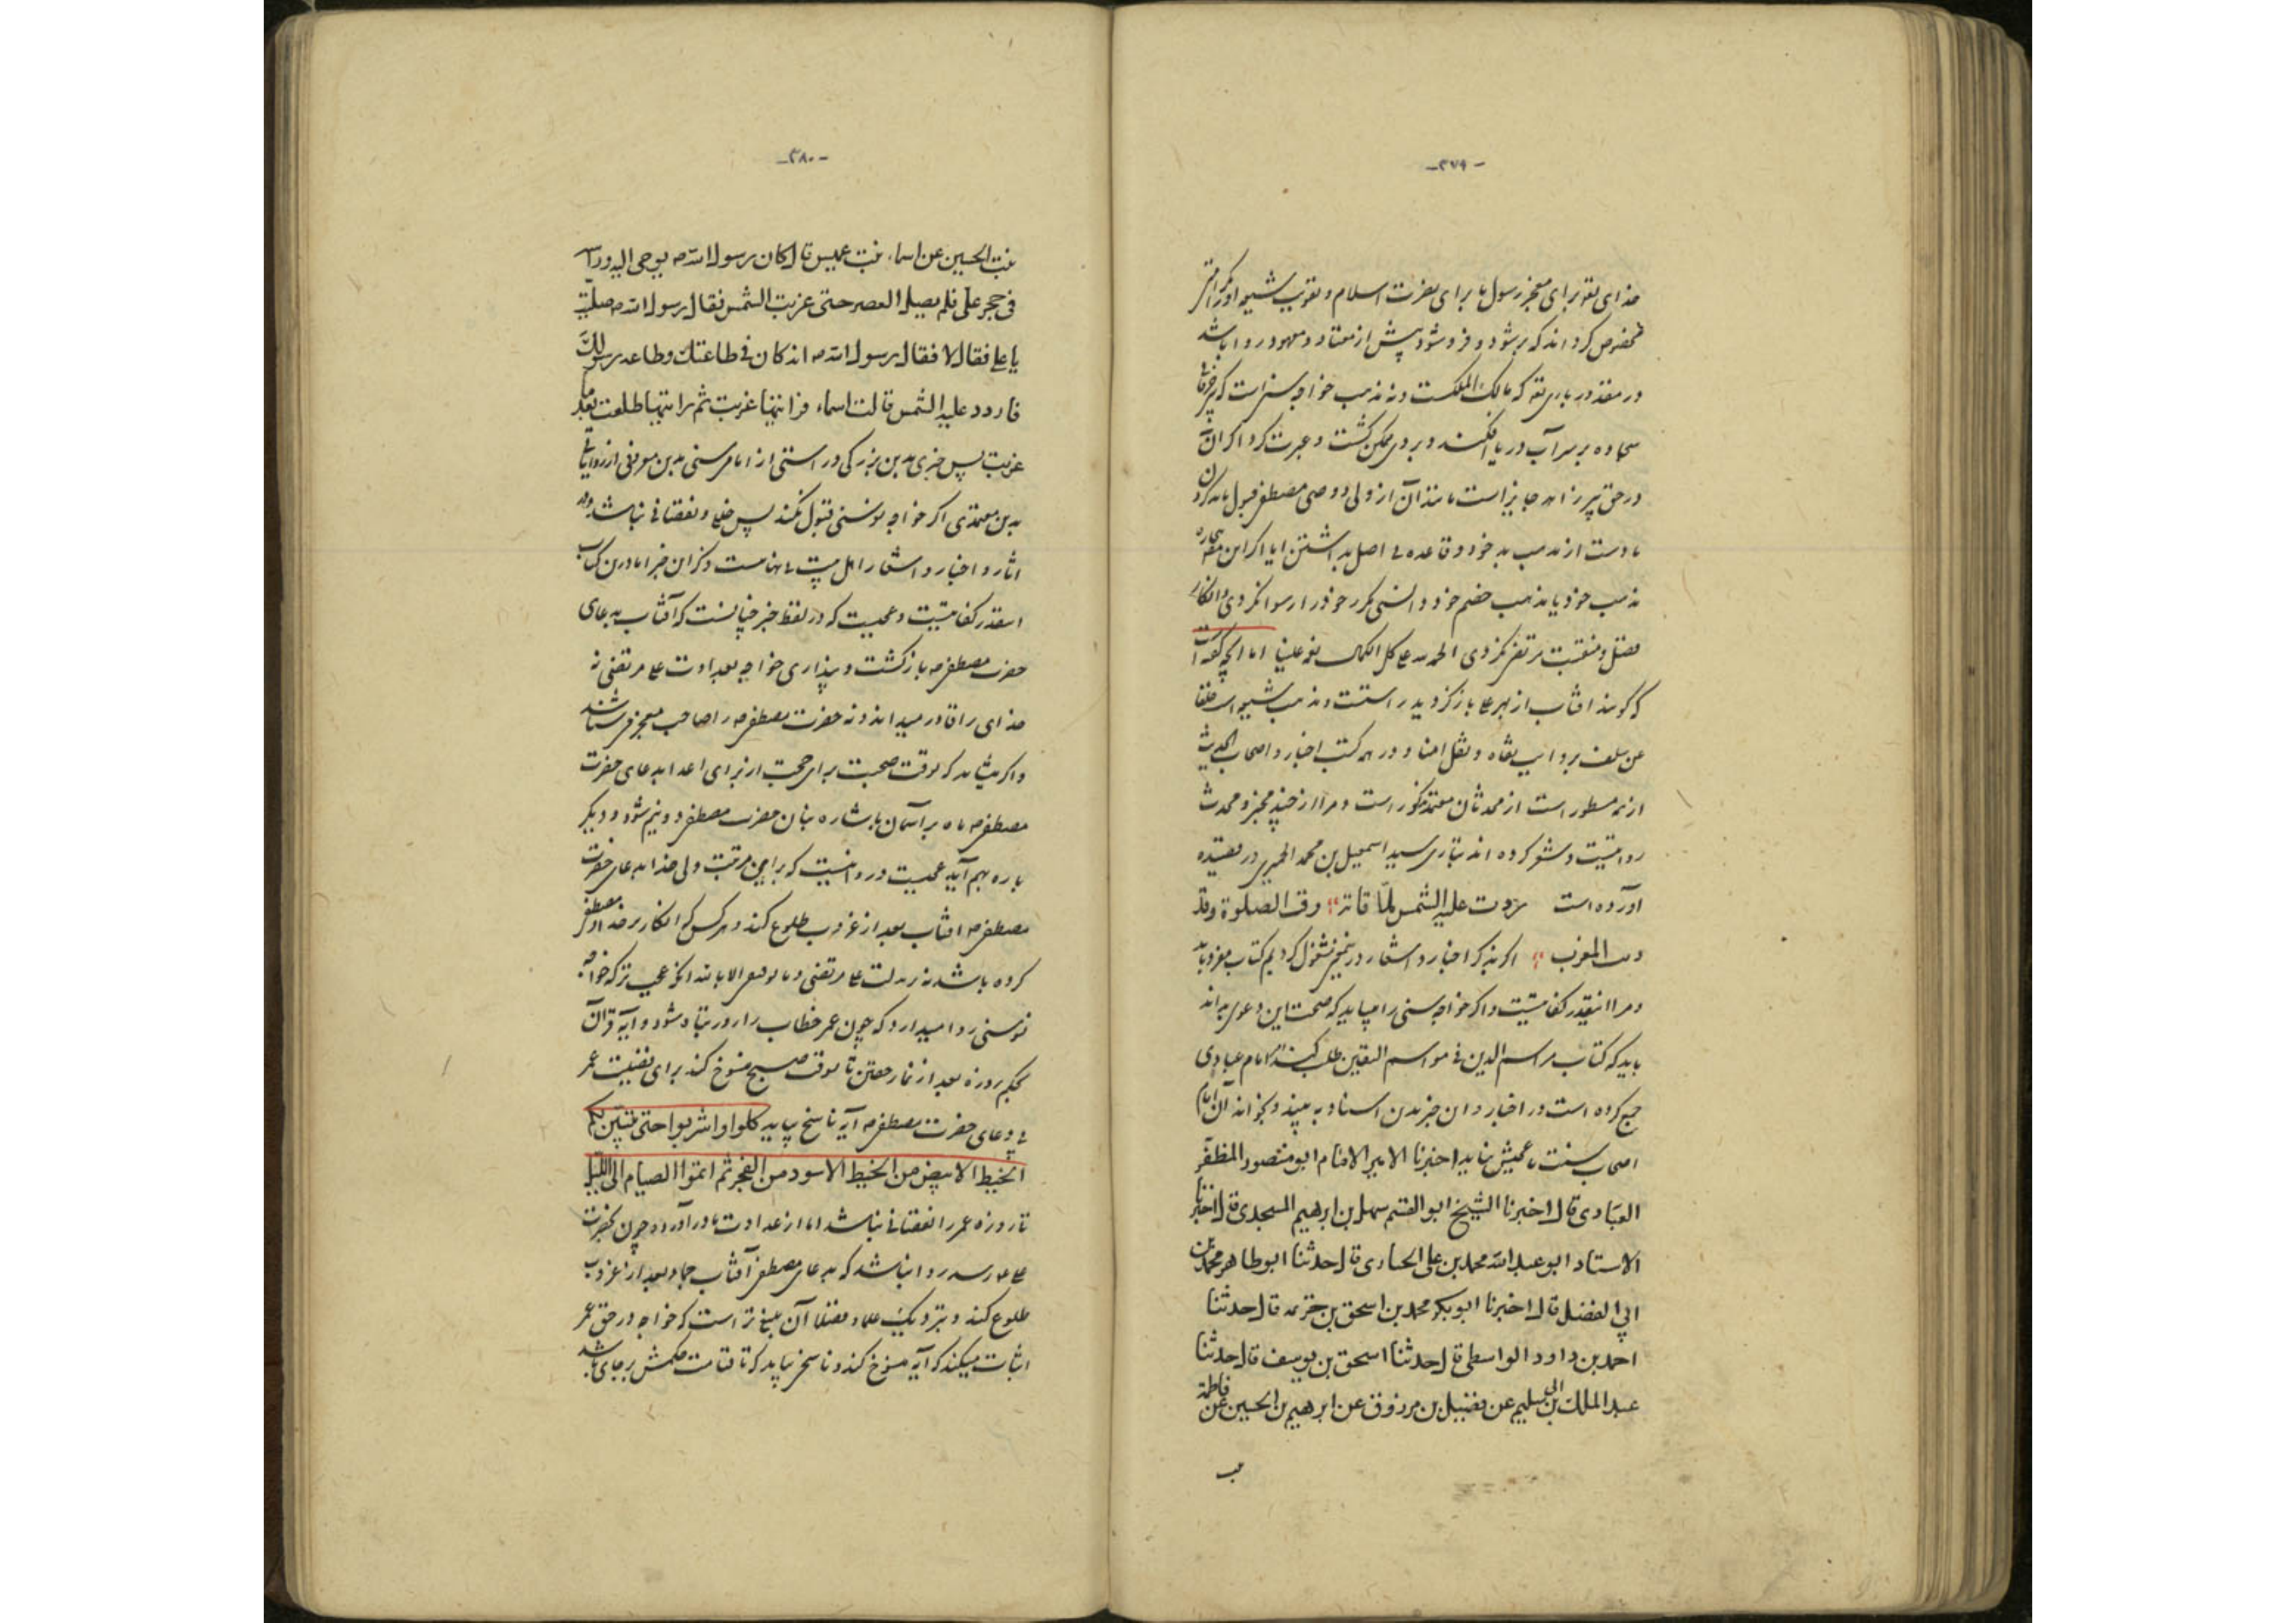 - ۳۷۹ -
خدای تعالی برای معجز رسول یا برای نصرت اسلام و تقویت شیعه او را
مخصوص کرد اند که برشود و فروشود پیش از معتاد و معهود روا باشد
در مقدور باری تعالی که مالک الملکست و نه مذهب خواجه سنی است که
سجاده بر سر آب دریا افکنند و بر وی ممکن گشت و عبرت کرد اگر آن
در حق پیر زاهد جایز است مانند آن از ولی و وصی مصطفی قبول باید کردن
یا دست از مذهب بد خود و قاعده بی اصل بداشتن ایا اگر این بیچاره
مذهب خود یا مذهب خصم خود دانستی مگر خود را رسوا نکردی و انکار
فضل و منقبت مرتضی نکردی الحمد لله علی کل نعمه علینا اما آنچه گفته است
که گویند افتاب از بهر علی باز گردید راستست و مذهب شیعه است خلفا
عن سلف بروایت ثقاة و نقل امنا و در همه کتب اخبار و اصحاب الحدیث
ازنه مسطور است از محدثان معتمد مذکور است و مرا از چند مخبر و محدث
روایتست و شعر کرده اند بتازی سید اسمعیل بن محمد الحمیری در قصیده
آورده است ردت علیه الشمس لما فاته وقت الصلوة وقد
دنت المغرب اگر بذکر اخبار و اشعار در مشغول کردیم کتاب بیفزاید
و مرا اینقدر کفایتست و اگر خواجه سنی را میباید که صحت این دعوی بداند
باید که کتاب مراسم الدین فی مواسم الیقین طلب کند که امام عبادی
جمع کرده است در اخبار و این خبر بدین اسناد به بیند و بخواند آن امام
اصحاب سنت تا عمیش بنماید اخبرنا الامیر الامام ابو منصور المظفر
العبادی قال اخبرنا الشیخ ابو القسم سهل بن ابرهیم المسجدی قال اخبرنا
الاستاد ابو عبد الله محمد بن علی قال حدثنا ابو طاهر محمد بن
ابی الفضل قال اخبرنا ابو بکر محمد بن اسحق بن خزیمه قال حدثنا
احمد بن داود الواسطی قال حدثنا اسحق بن یوسف قال حدثنا
عبد الملک بن ابی سلیم عن فضیل بن مرزوق عن ابرهیم بن الحسین عن فاطمة
- ۳۸۰ -
بنت الحسین عن اسماء بنت عمیس قال کان رسول الله ص یوحی الیه و راسه
فی حجر علی فلم یصل العصر حتی غربت الشمس فقال رسول الله ص صلیت
یا علی فقال لا فقال رسول الله ص انه کان فی طاعتک و طاعة رسولک
فاردد علیه الشمس قالت اسماء فرایتها غربت ثم رایتها طلعت بعد ما
غربت پس خبری بدین بزرگی و راستی از امام سنی بدین معروفی از
بدین معتمدی اگر خواجه نوسنی قبول نکند پس خللی و نقصانی نباشد و در
اثار و اخبار و اشعار اهل بیت بی نهایتست ذکر این خبر اما درین کتاب
اینقدر کفایتست و عجبست که در لفظ خبر چنانست که آفتاب بدعای
حضرت مصطفی ص باز گشت و پنداری خواجه بعداوت علی مرتضی نه
خدای را قادر میداند و نه حضرت مصطفی ص را صاحب معجز میشناسد
و اگر بشاید که بوقت صحبت برای حجت از برای اعدا بدعای حضرت
مصطفی ص ماه بر آسمان باشاره بنان حضرت مصطفی دو نیم شود و دیگر
باره بهم آید عجبست و روا نیست که برای مرتبت ولی خدا بدعای حضرت
مصطفی ص افتاب بعد از غروب طلوع کند و هر کس که انکار بر خدا و مصطفی
کرده باشد نه بر علی مرتضی و ما توفیقی الا بالله عجب تر که خواجه
نوسنی روا میدارد که چون عمر خطاب را روزه تباه شود و ایه قرآن
بحکم روزه بعد از نماز خفتن تا بوقت صبح منسوخ کند برای فضیلت عمر
بی دعای حضرت مصطفی ص آیه ناسخ بیاید کلوا و اشربوا حتی یتبین لکم
الخیط الابیض من الخیط الاسود من الفجر ثم اتموا الصیام الی اللیل
تا روزه عمر را نقصانی نباشد اما از عداوت مادرآورده چون بحضرت
علی رسد روا نباشد که بدعای مصطفی آفتاب جماد بعد از غروب
طلوع کند و بنزدیک علما و فضلا آن بلیغ تر است که خواجه در حق عمر
اثبات میکند که آیه منسوخ کند و ناسخ بیاید که تا قیامت حکمش بر جای باشد